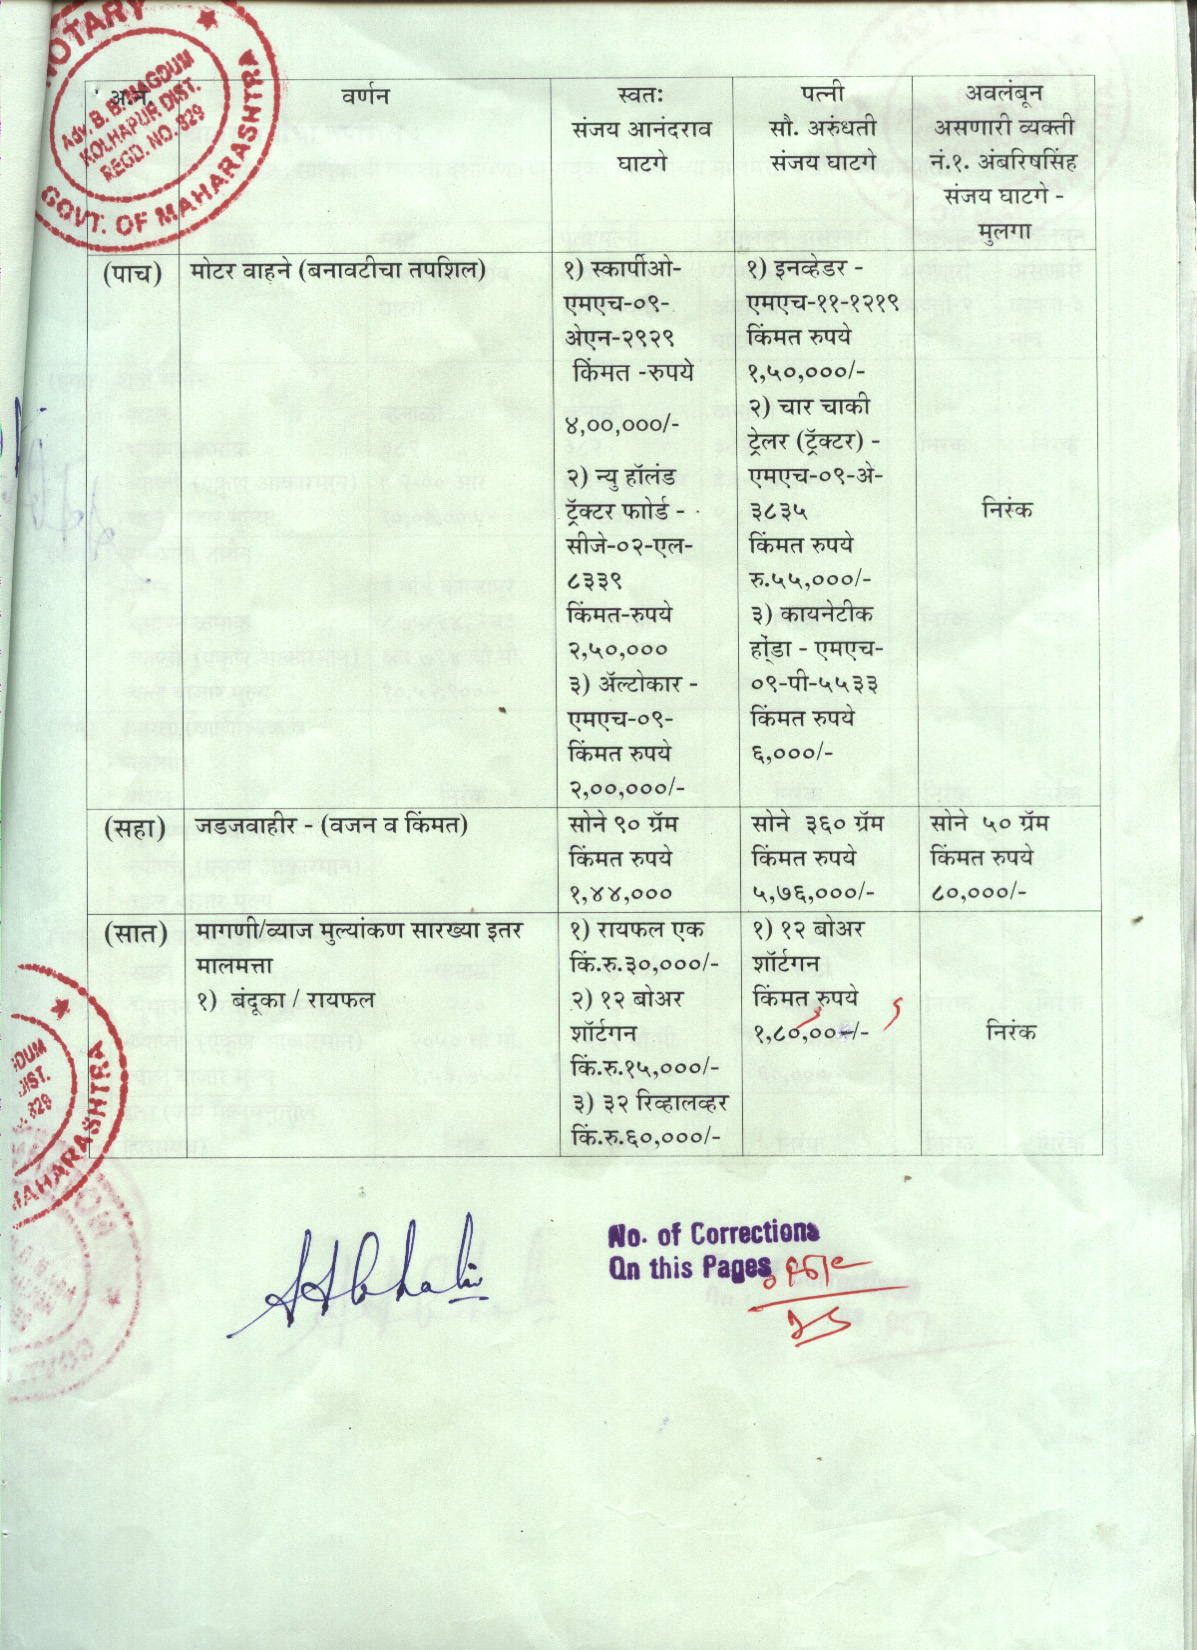 NOTARY
Adv. B. B. MAGDUM
KOLHAPUR DIST.
REGD. NO. 829
GOVT. OF MAHARASHTRA
अ.नं. वर्णन स्वतः पत्नी अवलंबून
संजय आनंदराव सौ. अरुंधती असणारी व्यक्ती
घाटगे संजय घाटगे नं.१. अंबरिषसिंह
संजय घाटगे -
मुलगा
(पाच) मोटर वाहने (बनावटीचा तपशिल)
१) स्कार्पीओ-
एमएच-०९-
अेएन-२९२९
किंमत -रुपये
४,००,०००/-
२) न्यु हॉलंड
ट्रॅक्टर फाोर्ड -
सीजे-०२-एल-
८३३९
किंमत-रुपये
२,५०,०००
३) ॲल्टोकार -
एमएच-०९-
किंमत रुपये
२,००,०००/-
१) इनव्हेडर -
एमएच-११-१२१९
किंमत रुपये
१,५०,०००/-
२) चार चाकी
ट्रेलर (ट्रॅक्टर) -
एमएच-०९-अे-
३८३५
किंमत रुपये
रु.५५,०००/-
३) कायनेटीक
होंडा - एमएच-
०९-पी-५५३३
किंमत रुपये
६,०००/-
निरंक
(सहा) जडजवाहीर - (वजन व किंमत)
सोने ९० ग्रॅम
किंमत रुपये
१,४४,०००
सोने ३६० ग्रॅम
किंमत रुपये
५,७६,०००/-
सोने ५० ग्रॅम
किंमत रुपये
८०,०००/-
(सात) मागणी/व्याज मुल्यांकण सारख्या इतर
मालमत्ता
१) बंदूका / रायफल
१) रायफल एक
किं.रु.३०,०००/-
२) १२ बोअर
शॉर्टगन
किं.रु.१५,०००/-
३) ३२ रिव्हालव्हर
किं.रु.६०,०००/-
१) १२ बोअर
शॉर्टगन
किंमत रुपये
१,८०,०००/-
निरंक
GDUM
DIST.
829
MAHARASHTRA
No. of Corrections
On this Pages